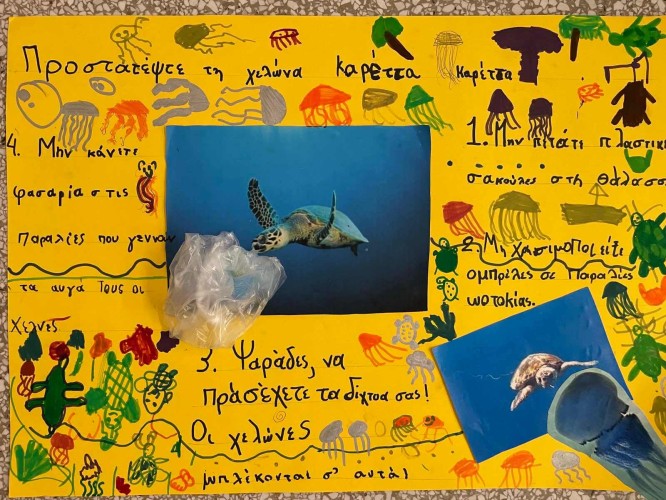 Προστατέψτε τη χελώνα καρέττα καρέττα
1. Μην πιτάτε πλαστικ
σακούλες στη θάλασσ
2. Μη χρησιμοποιείτε
ομπρέλες σε παραλίες
ωοτοκίας.
3. Ψαράδες, να
πράσέχετε τα δίχτυα σας!
Οι χελώνες
μπλέκονται σ' αυτά!
4. Μην κάνετε
φασαρία στις
παραλίες που γεννούν
τα αυγά τους οι
χελνες